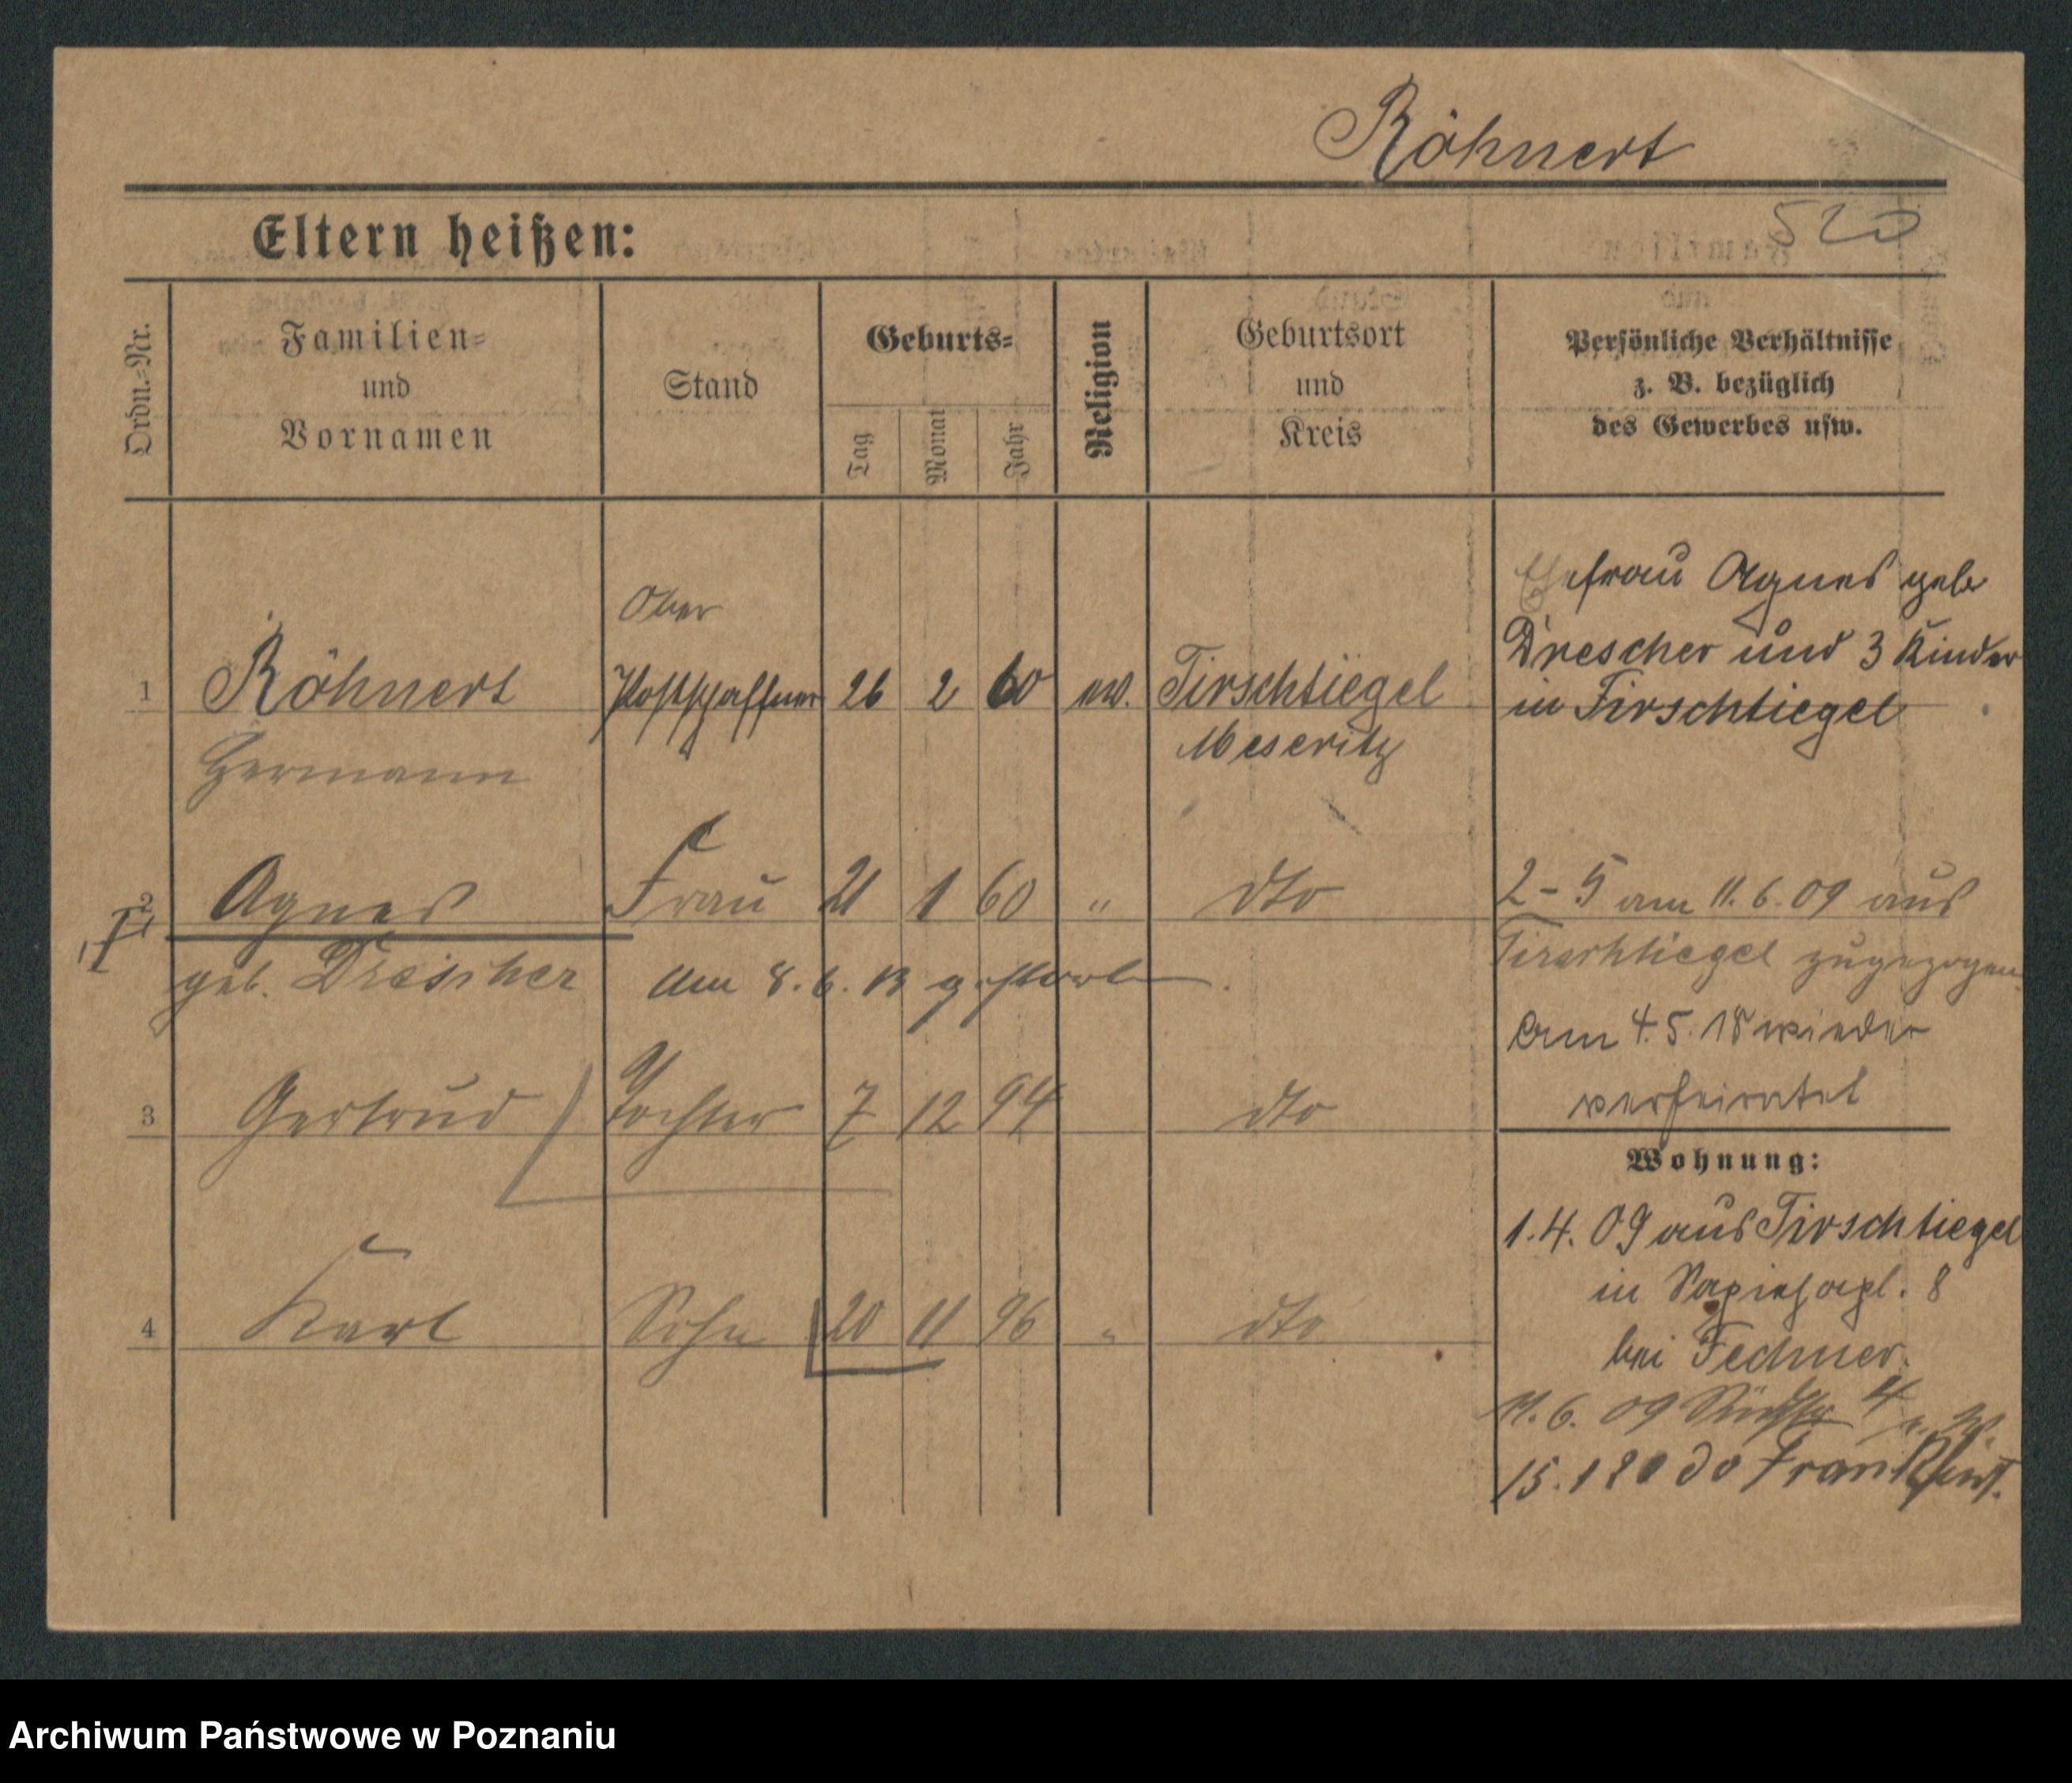 Röhnert
520
Eltern heißen:
Ordn.-Nr.
Familien-
und
Vornamen
Stand
Geburts-
Tag
Monat
Jahr
Religion
Geburtsort
und
Kreis
Persönliche Verhältnisse
z. B. bezüglich
des Gewerbes usw.
1 Röhnert
Hermann
Ober
Postschaffner
26 2 60 ev. Tirschtiegel
Meseritz
Ehefrau Agnes geb
Drescher und 3 Kinder
in Tirschtiegel
2 Agnes Frau 21 1 60 " dto
geb. Drescher am 8. 6. 13 gestorben
2-5 am 11. 6. 09 aus
Tirschtiegel zugezogen
Am 4. 5. 18 wieder
verheiratet
3 Gertrud Tochter 7 12 94 dto
4 Karl Sohn 20 11 96 " dto
Wohnung:
1. 4. 09 aus Tirschtiegel
in Sapiehapl. 8
bei Fechner.
11. 6. 09 4
15. 1 20 do Frankfurt.
Archiwum Państwowe w Poznaniu